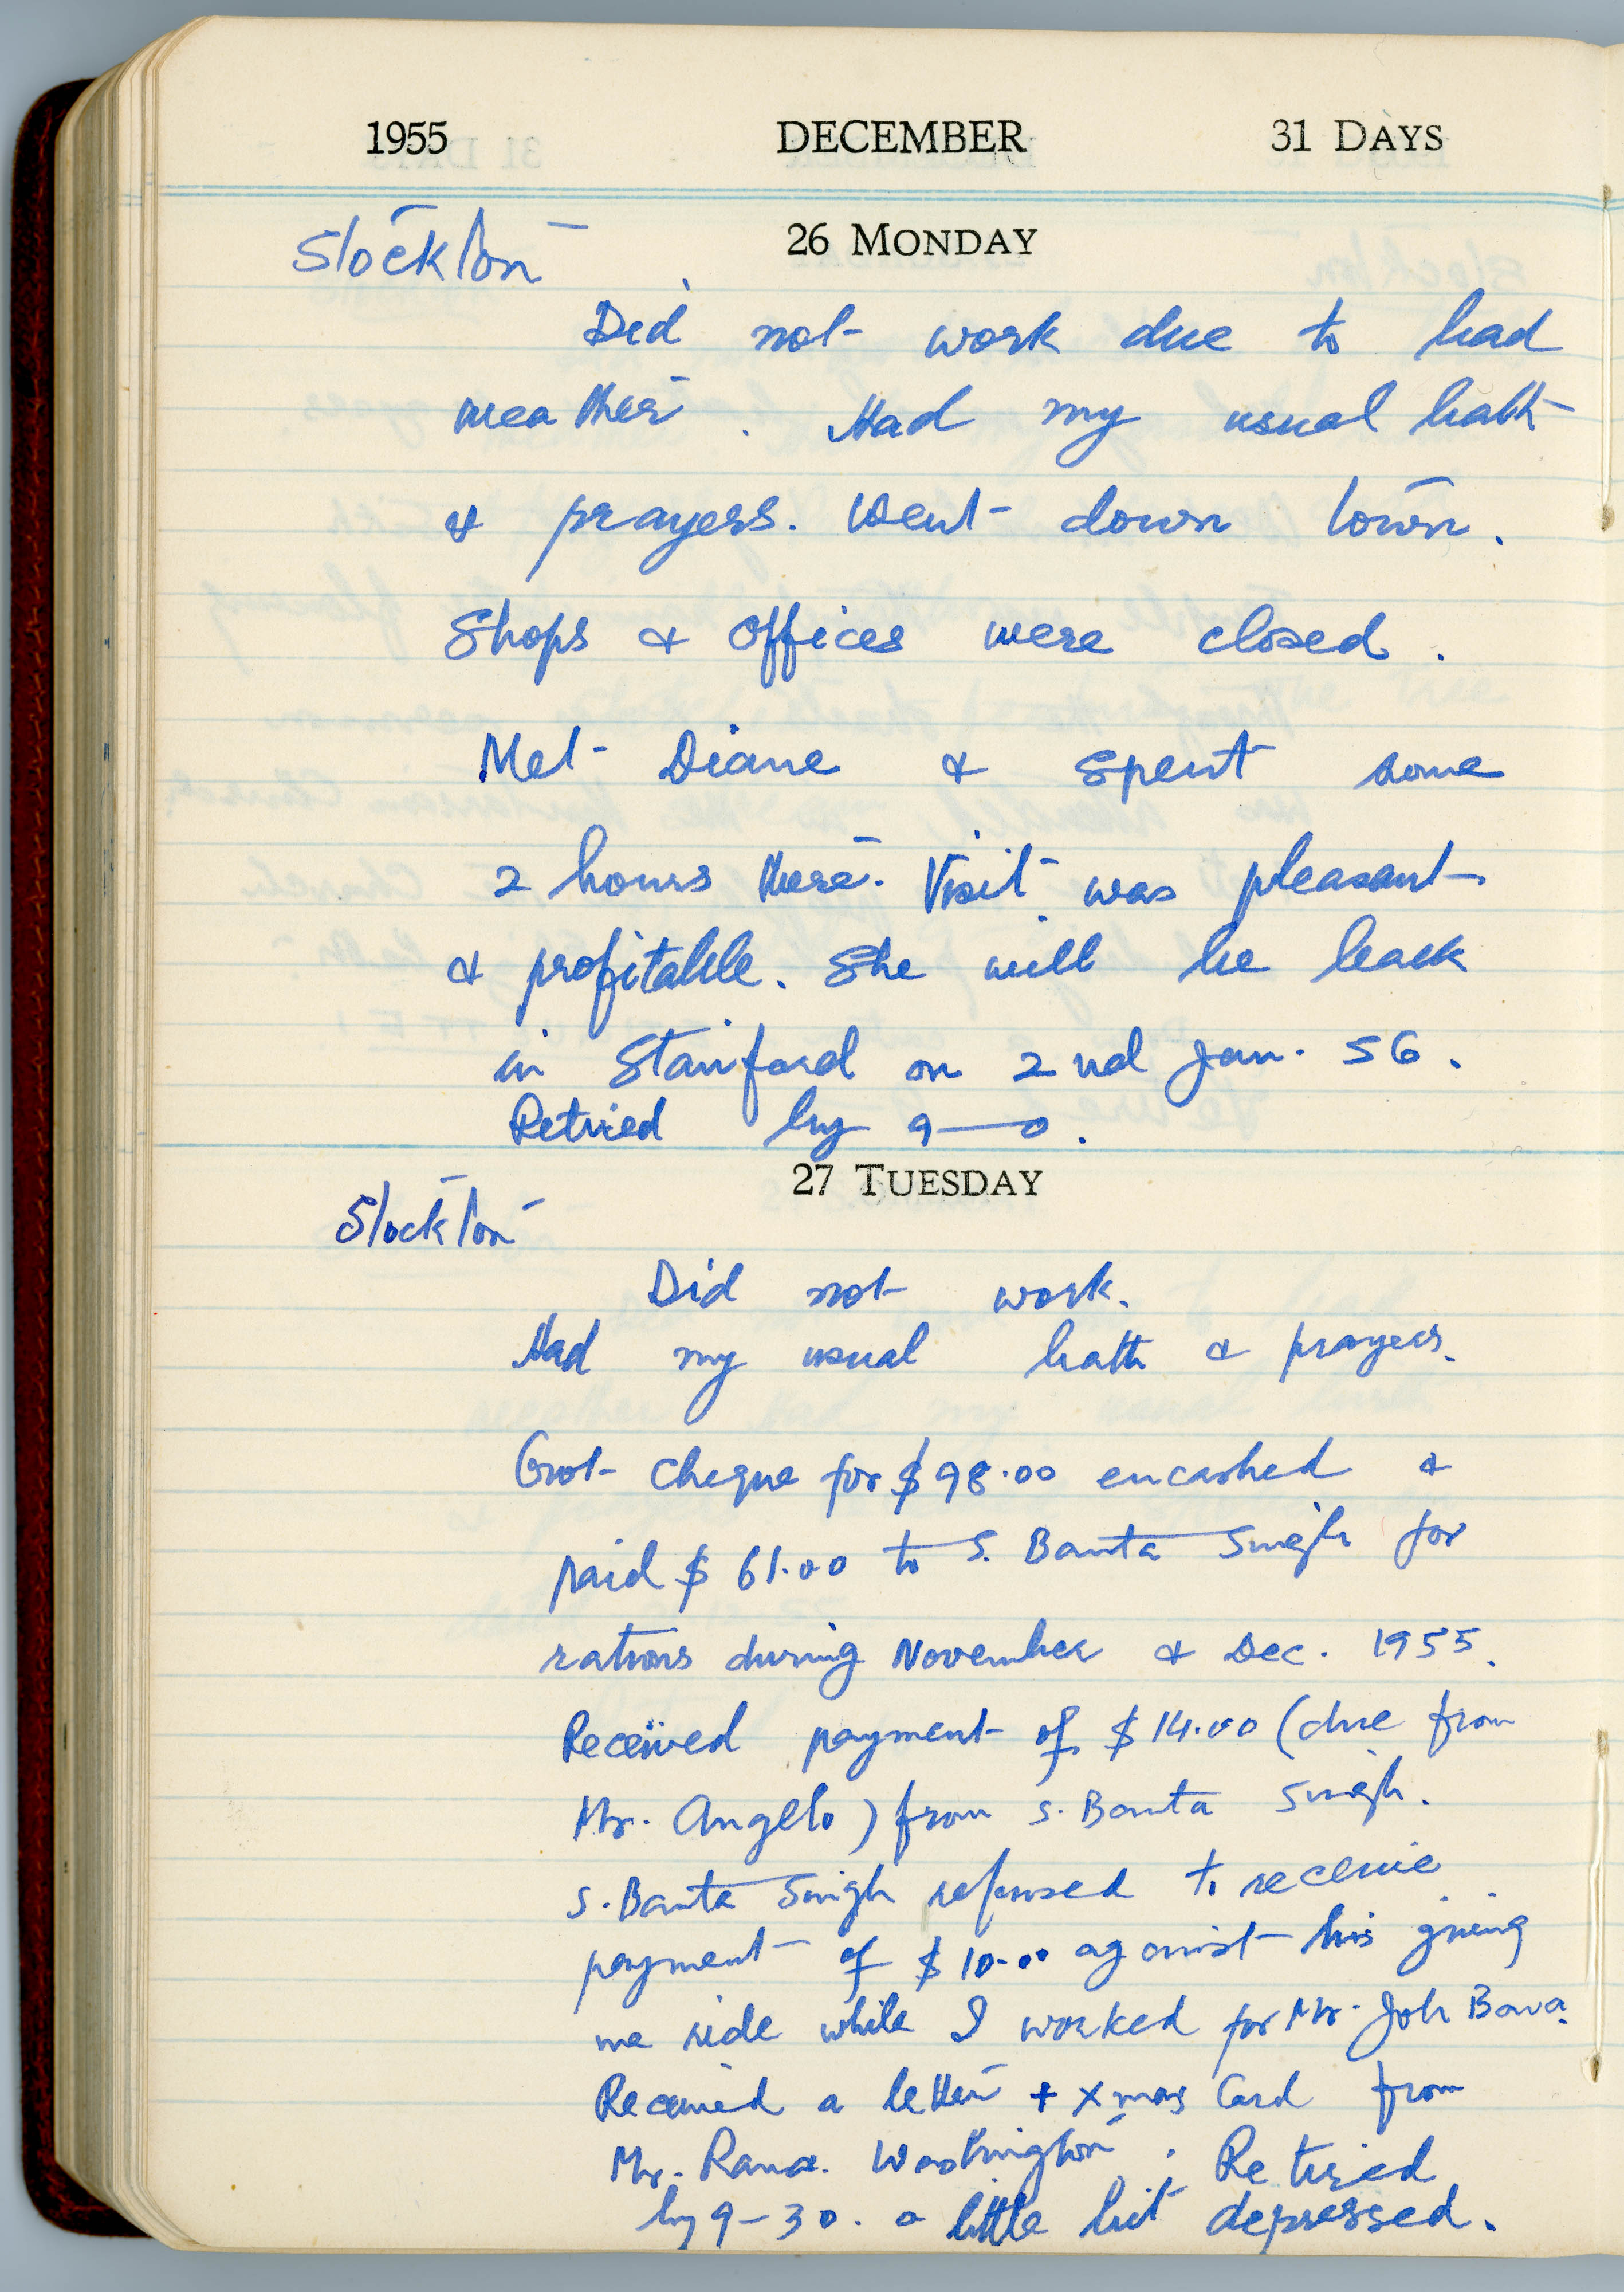 1955 DECEMBER 31 DAYS
26 MONDAY
Stockton
Did not work due to bad
weather. Had my usual bath
& prayers. Went down town.
Shops & offices were closed.
Met Diane & spent some
2 hours there. Visit was pleasant
& profitable. She will be back
in Stanford on 2nd Jan. 56.
Retired by 9—0.
27 TUESDAY
Stockton
Did not work.
Had my usual bath & prayers.
Got cheque for $98.00 encashed &
paid $61.00 to S. Banta Singh for
rations during November & Dec. 1955.
Received payment of $14.00 (due from
Mr. Angelo) from S. Banta Singh.
S. Banta Singh refused to receive
payment of $10.00 against his giving
me ride while I worked for Mr. Joh Bava.
Received a letter + Xmas Card from
Mr. Rana. Washington. Retired
by 9-30. a little bit depressed.